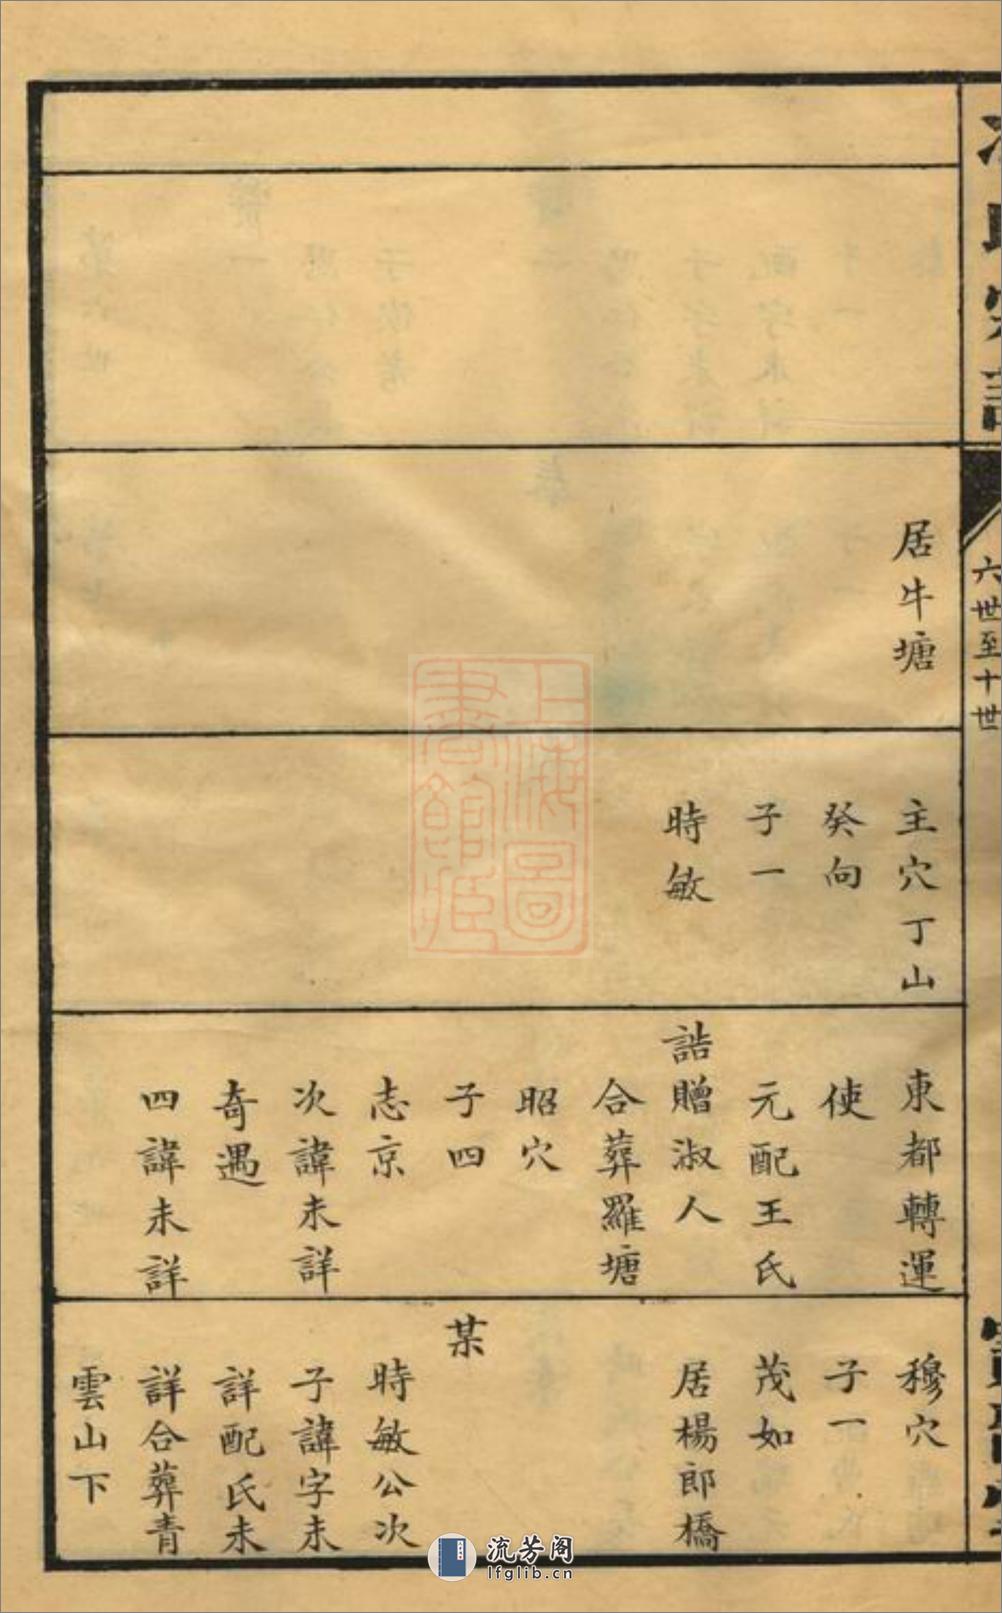 六世至十世
居牛塘
主穴丁山
癸向
子一
時敏
東都轉運
使
元配王氏
誥贈淑人
合葬羅塘
昭穴
子四
志京
次諱未詳
奇遇
四諱未詳
穆穴
子一
茂如
居楊郎橋
某
時敏公次
子諱字未
詳配氏未
詳合葬青
雲山下
上海圖
書館藏
流芳阁
lfglib.cn